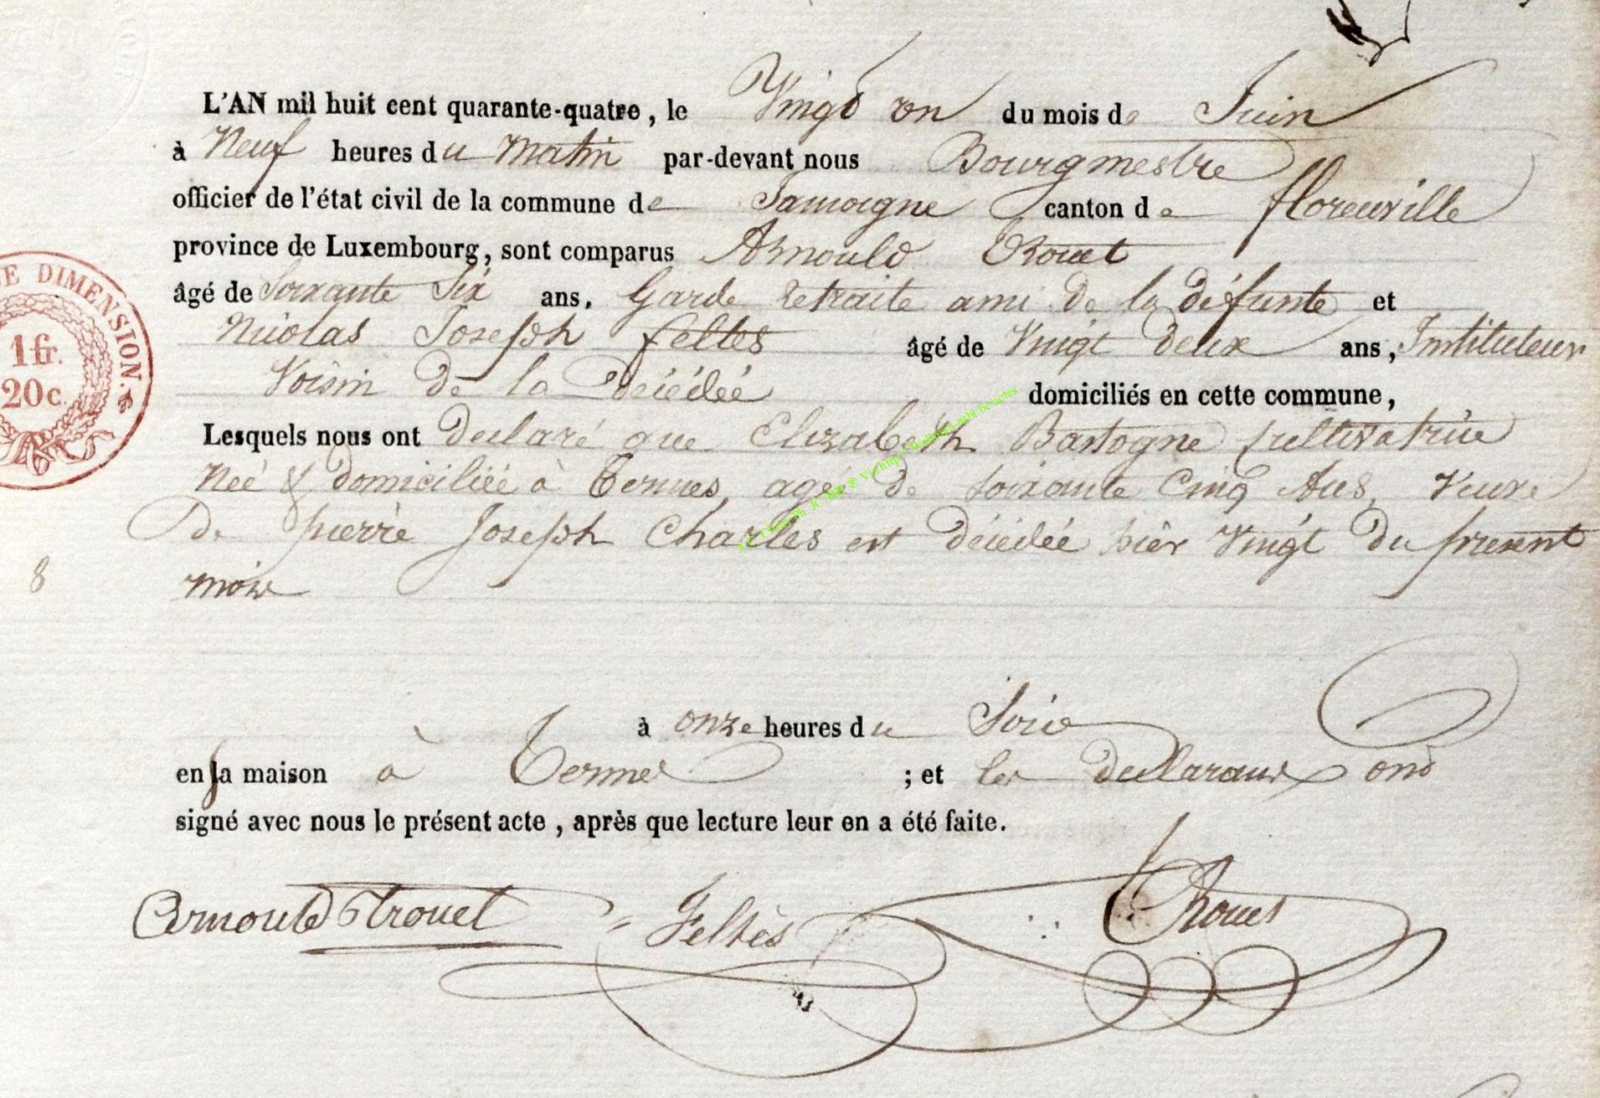 L'AN mil huit cent quarante-quatre, le Vingt un du mois de Juin
à Neuf heures du Matin par-devant nous Bourgmestre
officier de l'état civil de la commune de Jamoigne canton de florenville
province de Luxembourg, sont comparus Arnould Rouet
âgé de Soixante Six ans, Garde retraite ami de la défunte et
Nicolas Joseph feltes âgé de Vingt deux ans, Instituteur
Voisin de la Décédée domiciliés en cette commune,
Lesquels nous ont declaré que Elizabeth Bastogne Cultivatrice
Neé & domiciliée à Termes, agée de soixante Cinq Ans, Veuve
De pierre Joseph Charles est décédée hier Vingt du present
mois
à onze heures du Soir
en sa maison à Termes ; et les declarans ont
signé avec nous le présent acte, après que lecture leur en a été faite.
Feltès Rouet
DIMENSION.
1 fr.
20 c.
8